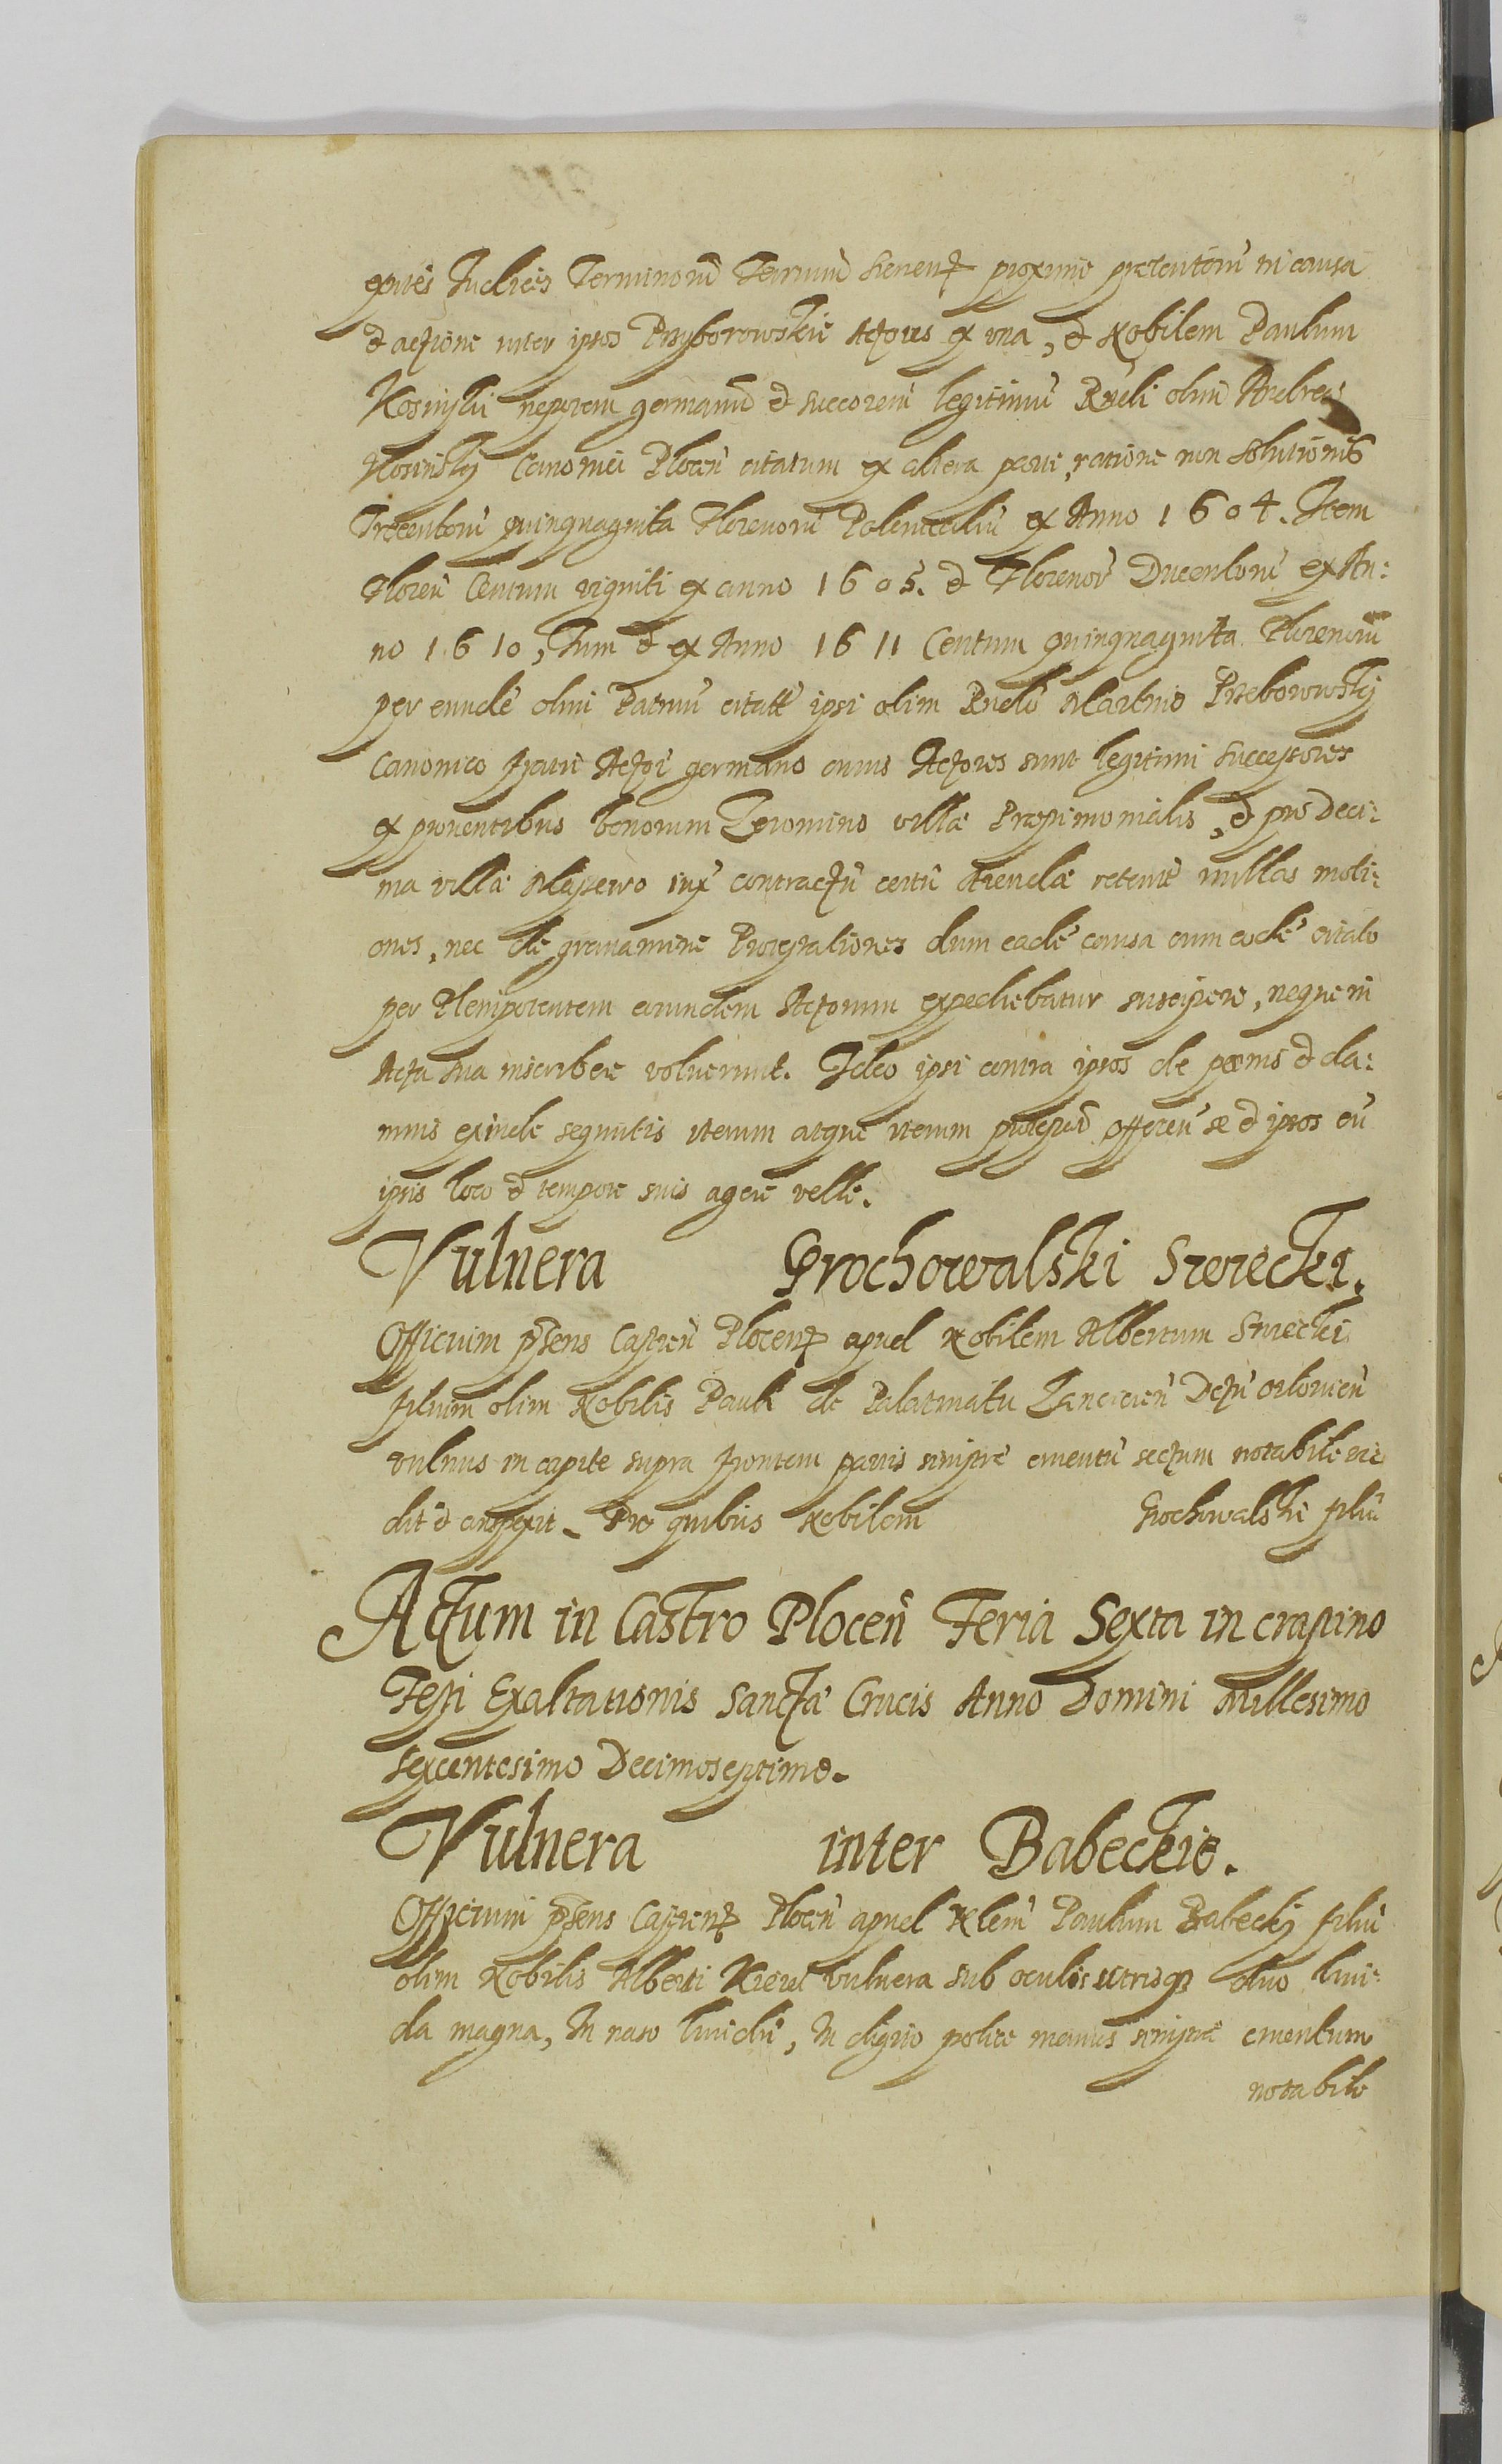 Judices Terminorũ Terrium proxime preteritorũ in causa
& actione inter ipsos Przyborowskie Actores ex una, & Nobilem Paulum
Kosinski nepotem germanũ & succorem legitimũ Rndi olim Andreæ
Kosinskij Canonici Plocen̄ citatum ex altera parte, ratione non solutionis
Trecentorũ quinquaginta Florenorũ Polonicaliũ ex Anno 1604. Item
Floren̄ Centum viginti ex anno 1605. & Florenorũ Ducentorũ ex An:
no 1610, Tum & ex Anno 1611 Centum quinquaginta Florenorũ
per eundẽ olim Patruũ ipsi olim Rndo Martino Przeborowskij
Canonico fratri germano cuius Actores sunt legitimi successores
ex proventibus bonorum Zeromino villæ & pro Deci:
ma villæ iux contractũ certũ Arendæ retentæ nullas moti:
ones, nec de gravamine Protestationes dum eadẽ causa cum eodẽ citato
per Plenipotentem eorundem Actorum expediebatur suscipere, neque in
Acta sua inscribere voluerunt. Ideo ipsi contra ipsos de pœnis & da:
mnis exinde sequutis iterum atque iterum offeren̄ se & ipsos cũ
ipsis loco & tempore suis agere velle.
Vulnera Grochowalski Swiecki.
Officium p̃sens Castren̄ Plocen̄ apud Nobilem Albertum Swiecki
filium olim Nobilis Pauli de Palatinatu Lancicien̄ Dctũ Orlovien̄
vulnus in capite supra frontem partis sinistræ cruentũ sectum notabile vi
dit & conspexit. Pro quibus Nobilem Grochowalski filiũ
Actum in Castro Plocen̄ Feria Sexta in crastino
Festi Exaltationis Sanctæ Crucis Anno Domini Millesimo
Sexcentesimo Decimoseptimo.
Vulnera inter Babeckie.
Officium p̃sens Castren̄ Plocen̄ apud Nlem̄ Paulum Babeckj filiũ
olim Nobilis Alberti vulnera sub oculis utrisq3 duo livi:
da magna, In naso lividũ, In digito police manus sinistræ cruentum
notabile